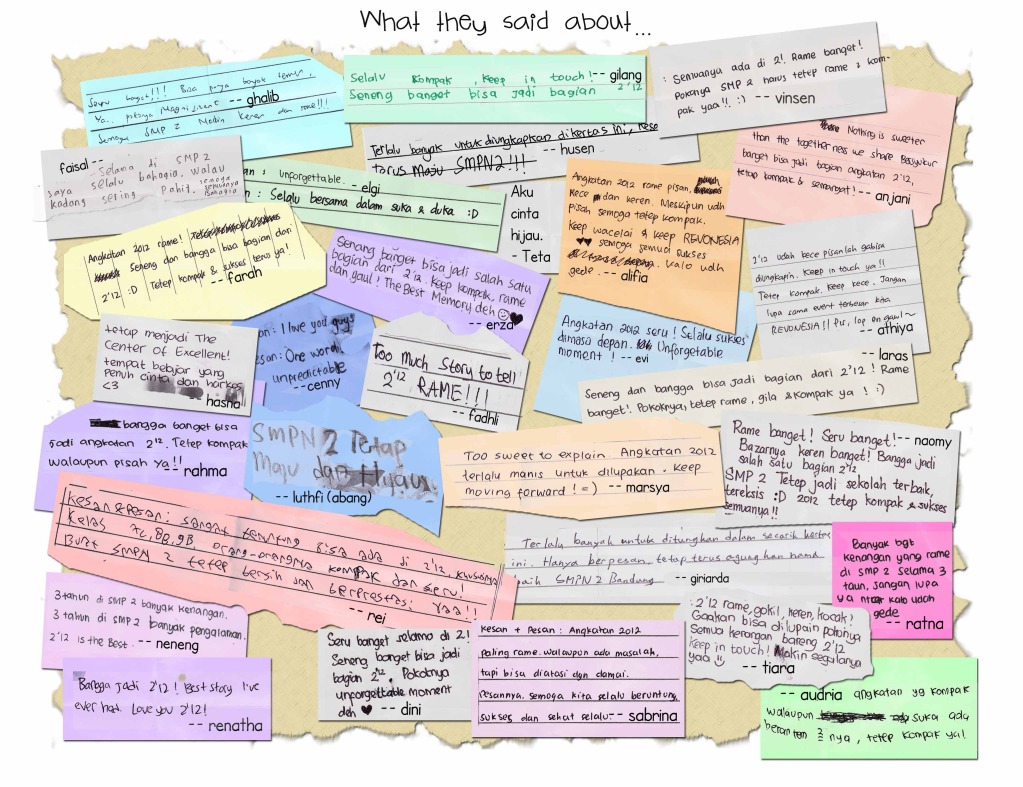 What they said about...
Seru banget!!! Bisa punya banyak temen,
Ya.. pokonya Magnificent -- ghalib
Semoga SMP 2 Makin keren dan rame!!!
Selalu kompak, keep in touch! -- gilang
Seneng banget bisa jadi bagian 2'12
: Semuanya ada di 2! Rame banget!
Pokonya SMP 2 harus tetep rame & kom-
pak yaa!! :) -- vinsen
faisal --
Selama di SMP 2
saya selalu bahagia. Walau
kadang sering pahit. semoga
semuanya
bahagia
Terlalu banyak untuk diungkapkan di kertas ini, kese
-- husen
terus Maju SMPN2!!!
Nothing is sweeter
than the togetherness we share. Bersyukur
banget bisa jadi bagian angkatan 2'12,
tetep kompak & semangat! -- anjani
an : unforgettable. -- elgi
n : Selalu bersama dalam suka & duka :D
Aku
cinta
hijau.
- Teta
Angkatan 2012 rame pisan,
kece dan keren. Meskipun udh
pisah semoga tetep kompak.
Keep wacelai & keep REVONESIA
♥♥ semoga semua sukses
valo udh
gede. -- alifia
Angkatan 2012 rame!
Seneng dan bangga bisa bagian dari
2'12 :D Tetep kompak & sukses terus ya!
-- farah
Senang banget bisa jadi salah satu
bagian dari 2'12. Keep kompak, rame
dan gaul! The Best Memory deh ☺♥
-- erza
2'12 udah kece pisanlah gabisa
diungkapin. Keep in touch ya!!
Tetep kompak. Keep kece. Jangan
lupa sama event terbesar kita
REVONESIA!! Pur, log en gaul~
-- athiya
tetap menjadi The
Center of Excellent!
tempat belajar yang
penuh cinta dan harkos
<3
-- hasna
an : I love you guys
esan : One word!
unpredictable
--cenny
Too Much Story to tell
2'12 RAME!!!
-- fadhli
Angkatan 2012 seru! Selalu sukses
dimasa depan. Unforgetable
moment! -- evi
-- laras
Seneng dan bangga bisa jadi bagian dari 2'12! Rame
banget!. Pokoknya, tetep rame, gila & kompak ya ! :)
bangga banget bisa
jadi angkatan 2'12. Tetep kompak
walaupun pisah ya!! rahma
SMPN 2 Tetap
Maju dan Hijau
-- luthfi (abang)
Too sweet to explain. Angkatan 2012
terlalu manis untuk dilupakan. keep
moving forward! =) -- marsya
Rame banget! Seru banget! -- naomy
Bazarnya keren banget! Bangga jadi
salah satu bagian 2'12
SMP 2 Tetep jadi sekolah terbaik,
tereksis :D 2012 tetep kompak & sukses
semuanya!!
kesan & pesan : sangat beruntung bisa ada di 2'12, khususnya
kelas 7C, 8D, 9B, orang-orangnya kompak dan seru!
Buat SMPN 2 tetep bersih dan berprestasi yaa!!
-- rei
Terlalu banyak untuk dituangkan dalam secarik kertas
ini. Hanya berpesan, tetap terus agungkan nama
baik SMPN 2 Bandung -- giriarda
Banyak bgt
kenangan yang rame
di smp 2 selama 3
taun, jangan lupa
ya ntar kalo udah
gede
-- ratna
3 tahun di SMP 2 banyak kenangan.
3 tahun di SMP 2 banyak pengalaman.
2'12 is the Best. -- neneng
Seru banget selama di 2!
Seneng banget bisa jadi
bagian 2'12. Pokoknya
unforgettable moment
deh ♥ -- dini
Kesan + Pesan : Angkatan 2012
paling rame. walaupun ada masalah,
tapi bisa diatasi dgn damai.
Pesannya, semoga kita selalu beruntung,
sukses dan sehat selalu -- sabrina
: 2'12 rame, gokil, keren, kocak!
Gaakan bisa dilupain pokonya
semua kenangan bareng 2'12
keep in touch! Makin segalanya
yaa ☺
-- tiara
Bangga jadi 2'12! Best story I've
ever had. Love you 2'12!
-- renatha
-- audria angkatan yg kompak
walaupun suka ada
berantem 2 nya, tetep kompak ya!